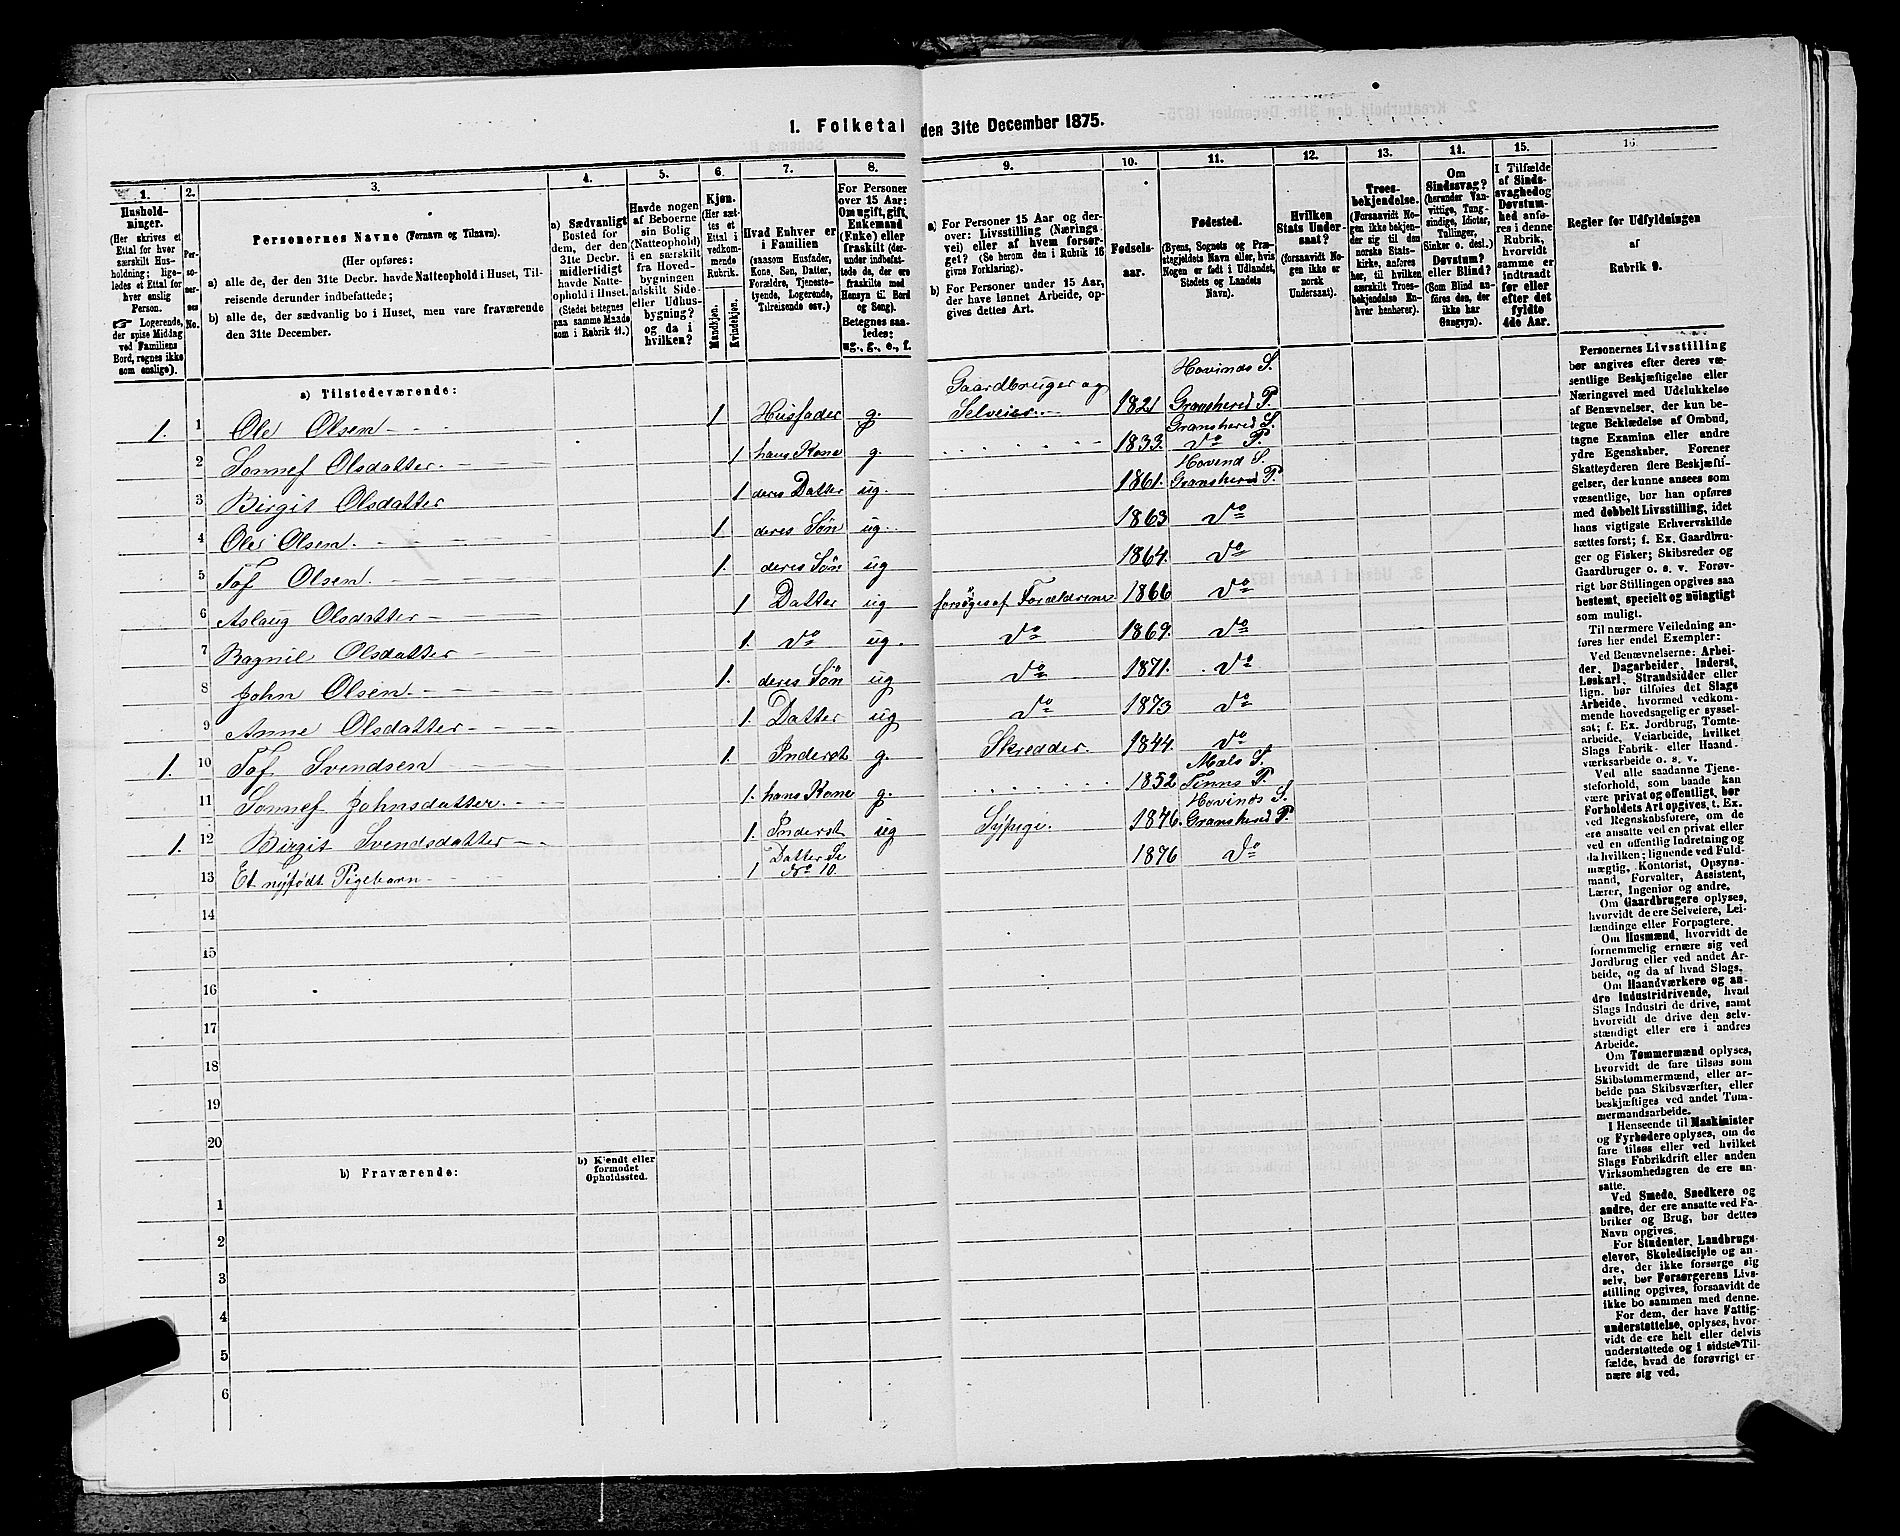 1. Folketal den 31te December 1875.
1.
Hushold-
ninger.
(Her skrives et
Ettal for hver
særskilt Hus-
holdning; lige-
ledes et Ettal for
hver enslig
Person.
☞ Logerende,
der spise Middag
ved Familiens
Bord, regnes ikke
som enslige).
2.
Per-
so-
ner-
nes
No.
3.
Personernes Navne (Fornavn og Tilnavn).
(Her opføres:
a) alle de, der den 31te Decbr. havde Natteophold i Huset, Til-
reisende derunder indbefattede;
b) alle de, der sædvanlig bo i Huset, men vare fraværende
den 31te December.
4.
a) Sædvanligt
Bosted for
dem, der den
31te Decbr.
midlertidigt
havde Natte-
ophold i Huset.
(Stedet betegnes
paa samme Maade
som i Rubrik 11.)
5.
Havde nogen
af Beboerne
sin Bolig
(Natteophold)
i en særskilt
fra Hoved-
bygningen
adskilt Side-
eller Udhus-
bygning?
og da i
hvilken?
6.
Kjøn.
(Her sæt-
tes et
Ettal i
vedkom-
mende
Rubrik.
Mandkjøn.
Kvindekjøn.
7.
Hvad Enhver er
i Familien
(saasom Husfader,
Kone, Søn, Datter,
Forældre, Tjeneste-
tyende, Logerende,
Tilreisende osv.)
8.
For Personer
over 15 Aar:
Om ugift, gift,
Enkemand
(Enke) eller
fraskilt (der-
under indbefat-
tede de, der ere
fraskilte med
Hensyn til Bord
og Seng).
Betegnes saa-
ledes:
ug., g., e., f.
9.
a) For Personer 15 Aar og der-
over: Livsstilling (Nærings-
vei) eller af hvem forsør-
get? (Se herom den i Rubrik 16
givne Forklaring).
b) For Personer under 15 Aar,
der have lønnet Arbeide, op-
gives dettes Art.
10.
Fødsels-
aar.
11.
Fødested.
(Byens, Sognets og Præ-
stegjeldets Navn eller, hvis
Nogen er født i Udlandet,
Stedets og Landets
Navn).
12.
Hvilken
Stats Under-
saat?
(forsaavidt No-
gen ikke er
norsk
Undersaat).
13.
Troes-
bekjendelse.
(Forsaavidt No-
gen ikke bekjen-
der sig til den
norske Stats-
kirke, anføres
her, til hvilken
særskilt Troes-
bekjendelse En-
hver henhører).
14.
Om
Sindssvag?
(herunder Van-
vittige, Tung-
sindige, Idioter,
Tullinger,
Sinker o. desl.)
Døvstum?
eller Blind?
(Som Blind an-
føres den, der
ikke har
Gangsyn).
15.
I Tilfælde
af Sinds-
svaghed og
Døvstum-
hed anfø-
res i denne
Rubrik,
hvorvidt
samme er
indtraadt
før eller
efter det
fyldte
4de Aar.
16
Regler for Udfyldningen
af
Rubrik 9.
a) Tilstedeværende:
1. 1 Ole Olsen 1 Husfader g. Gaardbruger og Selveier 1821 Hovinds S. Gransherred P.
2 Sonnef Olsdatter. 1 hans Kone g. 1833. Gransherred S. do P.
3 Birgit Olsdatter 1 deres Datter ug. 1861. Hovend S. Gransherred P.
4 Ole Olsen. 1 deres Søn ug. 1863 do
5 Tof Olsen. 1. deres Søn ug 1864. do
6 Aslaug Olsdatter 1 Datter ug forsøges af Forælderene 1866 do
7 Ragnil Olsdatter 1. do ug. do 1869. do
8 John Olsen. 1. deres Søn ug do 1871. do
9 Anne Olsdatter 1. Datter ug do 1873 do
1. 10 Tof Svendsen 1. Inderst g. Skredder. 1844. do
11 Sonnef Johnsdatter. 1. hans Kone g. 1852 Mæls S. Tinns P.
1. 12 Birgit Svendsdatter 1. Inderst ug Sypige. 1846. Hovinds S. Gransherred P.
13 Et nyfødt Pigebarn 1 Datter Se No 10. 1876 do
14
15
16
17
18
19
20
b) Fraværende:
b) Kjendt eller
formodet
Opholdssted.
1
2
3
4
5
6
Personernes Livsstilling
bør angives efter deres væ-
sentlige Beskjæftigelse eller
Næringsvei med Udelukkelse
af Benævnelser, der kun be-
tegne Beklædelse af Ombud,
tagne Examina eller andre
ydre Egenskaber. Forener
Skatteyderen flere Beskjæfti-
gelser, der kunne ansees som
væsentlige, bør han opføres
med dobbelt Livsstilling, idet
hans vigtigste Erhvervskilde
sættes først; f. Ex. Gaardbru-
ger og Fisker; Skibsreder og
Gaardbruger o. s. v. Forøv-
rigt bør Stillingen opgives saa
bestemt, specielt og nöiagtigt
som muligt.
Til nærmere Veiledning an-
føres her endel Exempler:
Ved Benævnelserne: Arbei-
der, Dagarbeider, Inderst,
Løskarl, Strandsidder eller
lign. bør tilføies det Slags
Arbeide, hvormed vedkom-
mende hovedsagelig er syssel-
sat; f. Ex. Jordbrug, Tomte-
arbeide, Veiarbeide, hvilket
Slags Fabrik- eller Haand-
værksarbeide o. s. v.
Ved alle saadanne Tjene-
steforhold, som baade kan
være privat og offentligt, bør
Forholdets Art opgives, t. Ex.
ved Regnskabsførere, om de
ere ansatte ved en privat eller
ved en offentlig Indretning og
da hvilken; lignende ved Fuld-
mægtig, Kontorist, Opsyns-
mand, Forvalter, Assistent,
Lærer, Ingeniør og andre.
Om Gaardbrugere oplyses,
hvorvidt de ere Selveiere, Lei-
lændinge eller Forpagtere.
Om Husmænd, hvorvidt de
fornemmelig ernære sig ved
Jordbrug eller ved andet Ar-
beide, og da af hvad Slags.
Om Haandværkere og an-
dre Industridrivende, hvad
Slags Industri de drive, samt
hvorvidt de drive den selv-
stændigt eller ere i andres
Arbeide.
Om Tømmermænd oplyses,
hvorvidt de fare tilsøs som
Skibstømmermænd, eller ar-
beide paa Skibsværfter, eller
beskjæftiges ved andet Tøm-
mermandsarbeide.
I Henseende til Maskinister
og Fyrbødere oplyses, om de
fare tilsøs eller ved hvilket
Slags Fabrikdrift eller anden
Virksomhedsgren de ere an-
satte.
Ved Smede, Snedkere og
andre, der ere ansatte ved Fa-
briker og Brug, bør dettes
Navn opgives.
For Studenter, Landbrugs-
elever, Skoledisciple og an-
dre, der ikke forsørge sig
selv, bør Forsørgerens Livs-
stilling opgives, forsaavidt de
ikke bo sammen med denne.
For dem, der have Fattig-
understøttelse, oplyses, hvor-
vidt de ere helt eller delvis
understøttede og i sidste Til-
fælde, hvad de forøvrigt er-
nære sig ved.